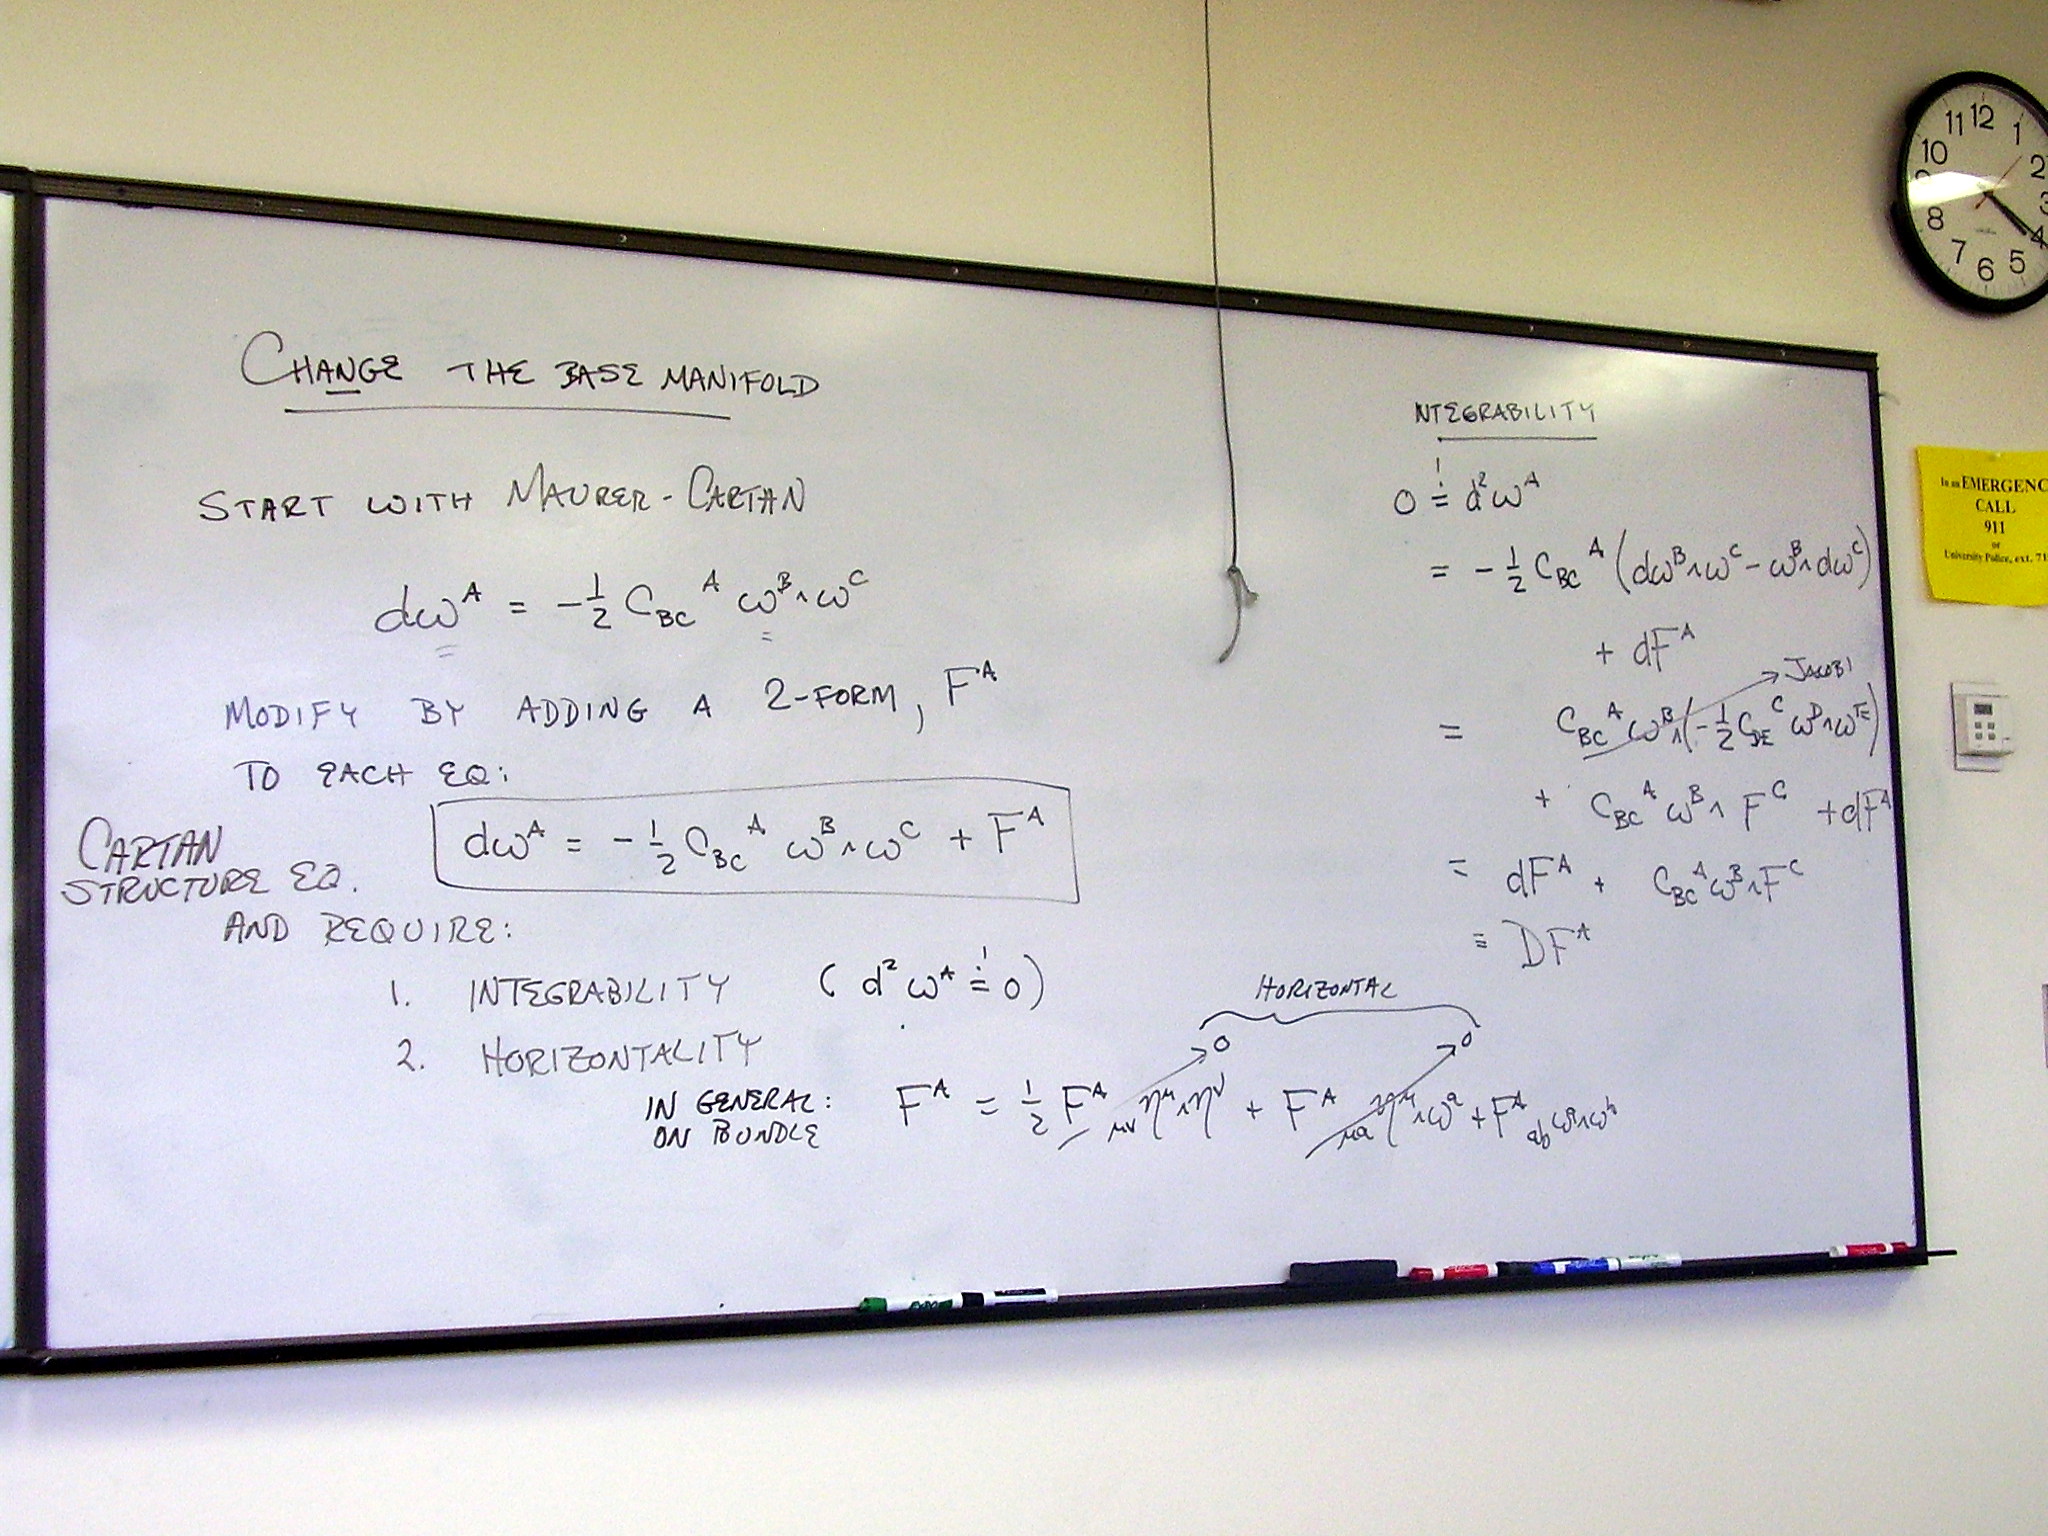 CHANGE THE BASE MANIFOLD
START WITH MAURER-CARTAN
dω^A = -1/2 C_BC^A ω^B ∧ ω^C
MODIFY BY ADDING A 2-FORM, F^A
TO EACH EQ:
CARTAN
STRUCTURE EQ.
dω^A = -1/2 C_BC^A ω^B ∧ ω^C + F^A
AND REQUIRE:
1. INTEGRABILITY (d²ω^A ≐! 0)
2. HORIZONTALITY
IN GENERAL:
ON BUNDLE
F^A = 1/2 F^A_μν η^μ ∧ η^ν + F^A_μa η^μ ∧ ω^a + F^A_ab ω^a ∧ ω^b
0 0
HORIZONTAL
NTEGRABILITY
0 =! d²ω^A
= -1/2 C_BC^A (dω^B ∧ ω^C - ω^B ∧ dω^C)
+ dF^A
JACOBI
= C_BC^A ω^B ∧ (-1/2 C_DE^C ω^D ∧ ω^E)
+ C_BC^A ω^B ∧ F^C + dF^A
= dF^A + C_BC^A ω^B ∧ F^C
≡ DF^A
11 12 1
10 2
8 3
7 6 5 4
In an EMERGENC
CALL
911
or
University Police, ext. 71
EXPO